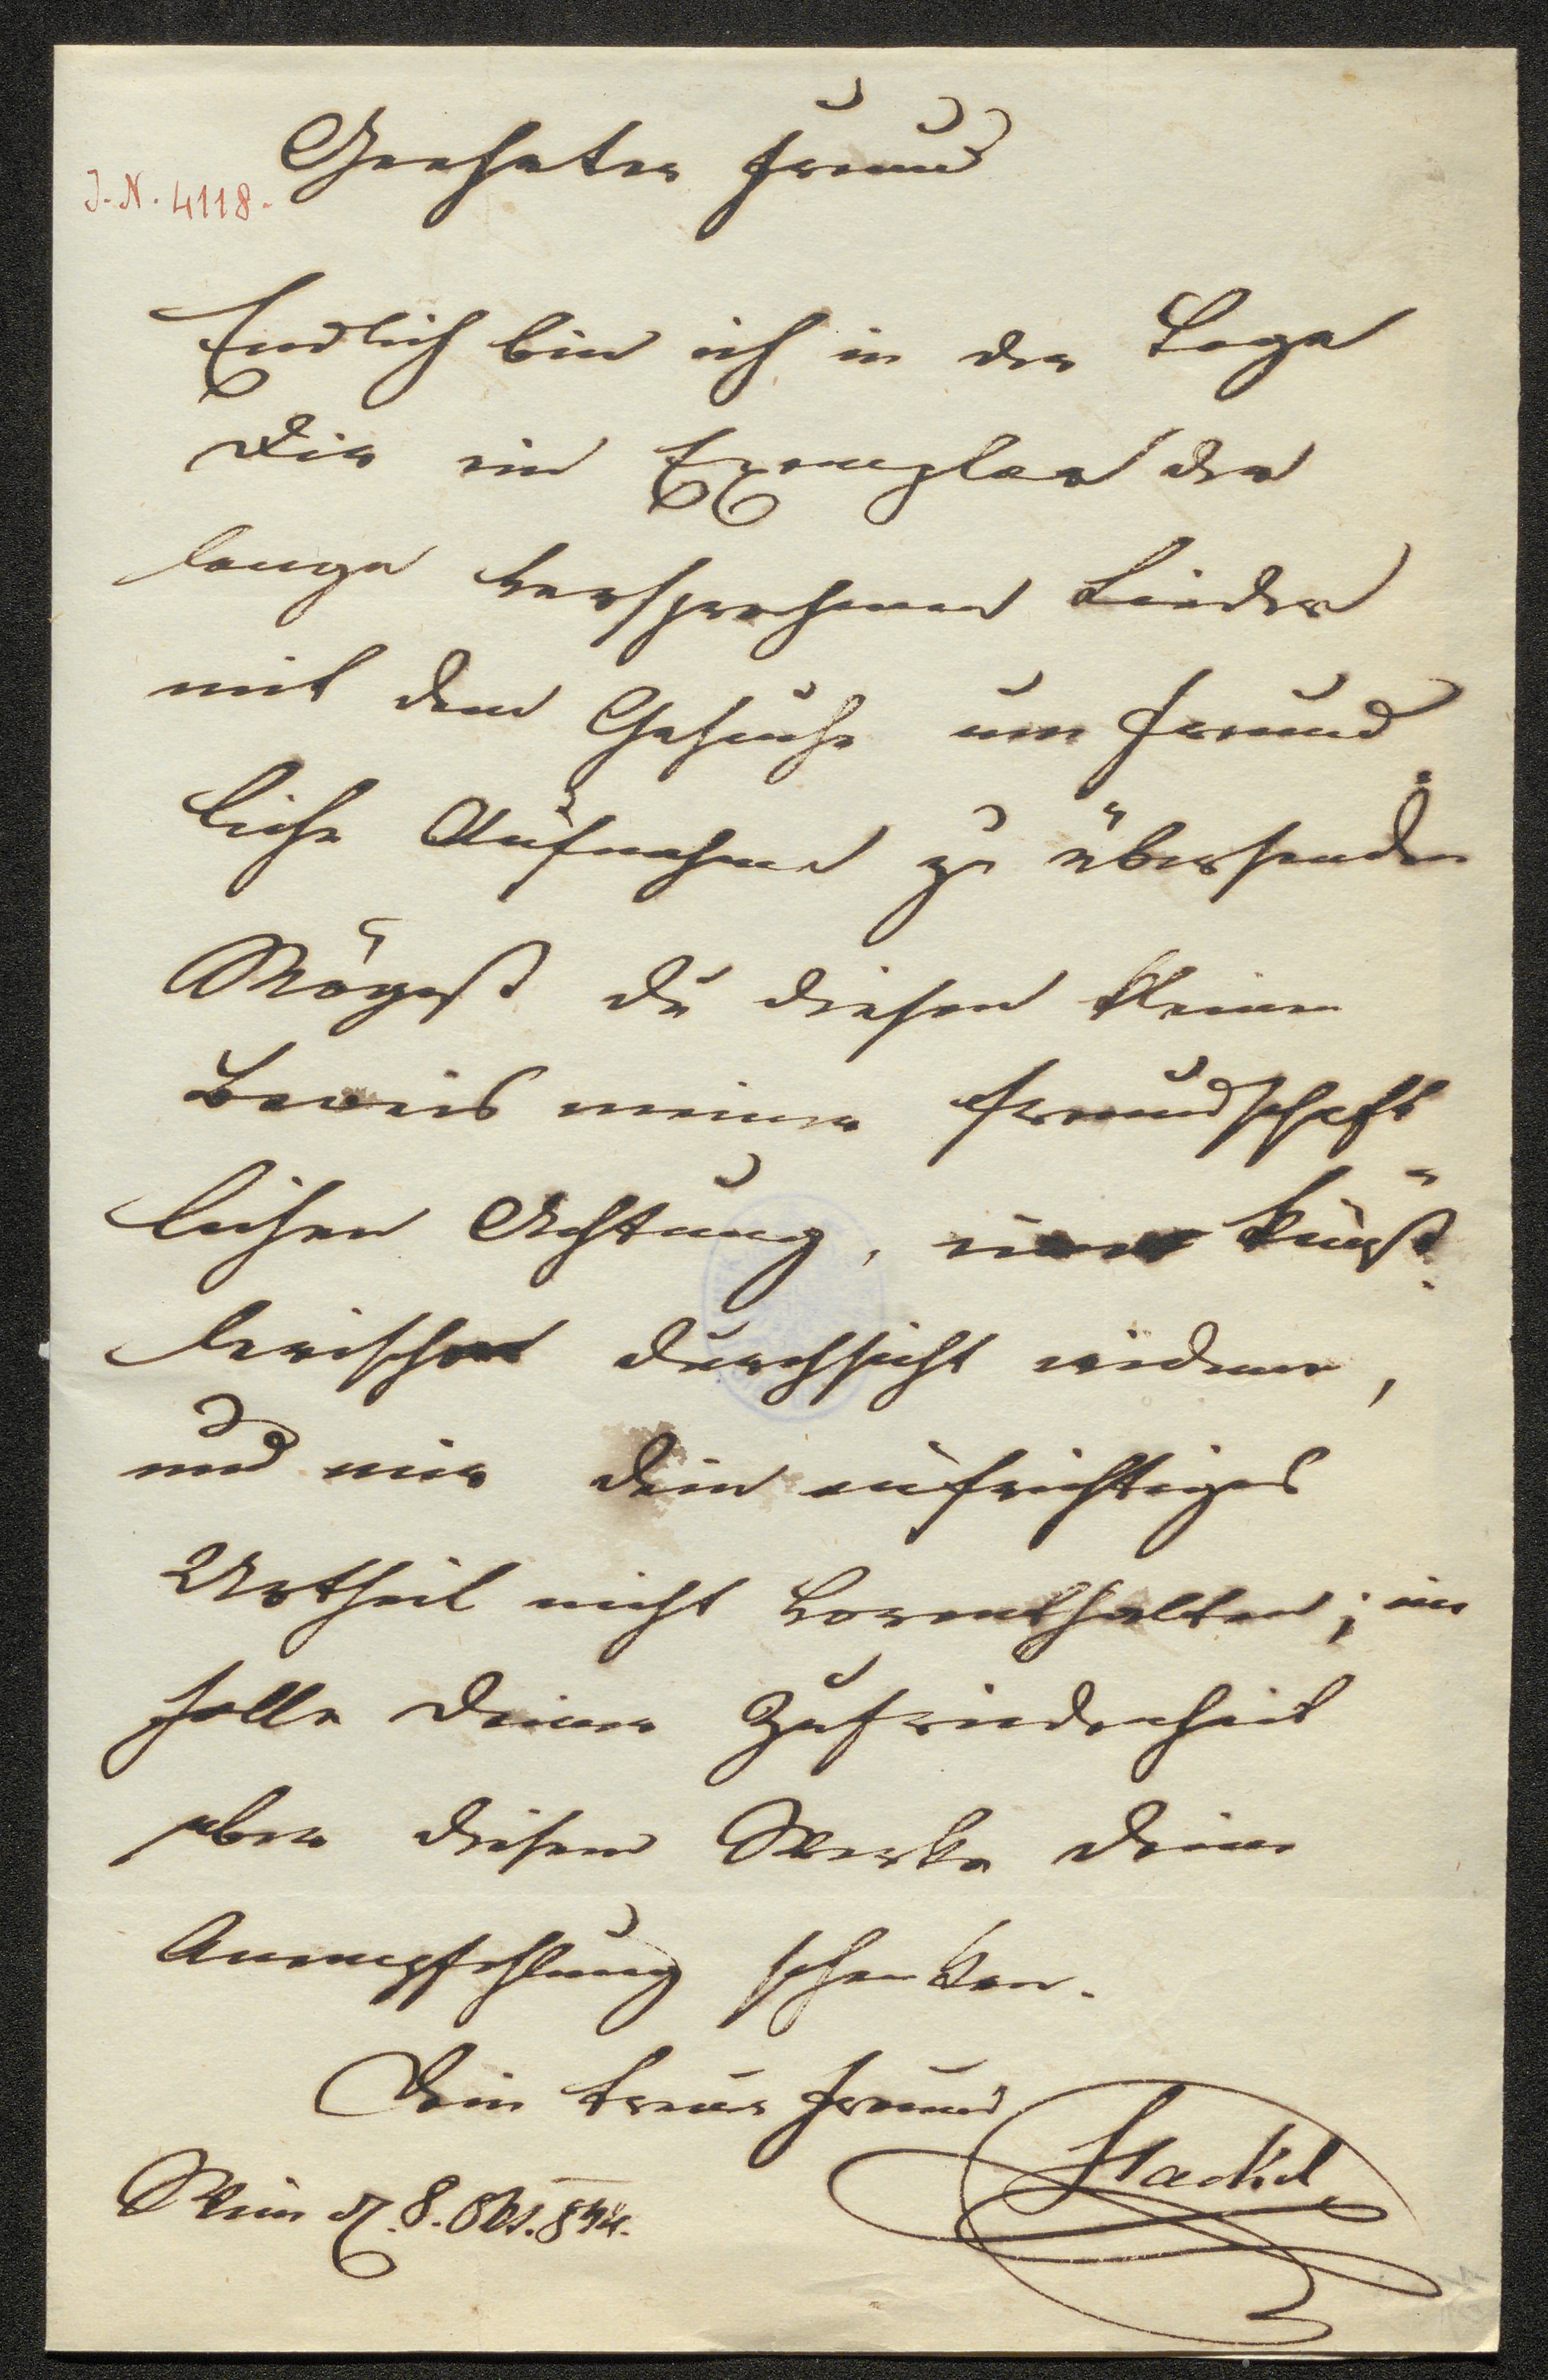 Geehrter Freund
J. N. 4118.
Endlich bin ich in der Lage
Dir ein Exemplar der
lange versprochenen Lieder
mit dem Gesuche um freund
liche Aufnahme zu übersenden
Mögest du diesen kleinen
Beweis meiner freundschaft
lichen Achtung, künst
lerischer Durchsicht widmen,
und mir dein aufrichtiges
Urtheil nicht vorenthalten; im
Falle deiner Zufriedenheit
aber diesem Werke deine
Anempfehlung schenken.
Dein treuer Freund
Hackel
Wien d. 8. Okt. 844.